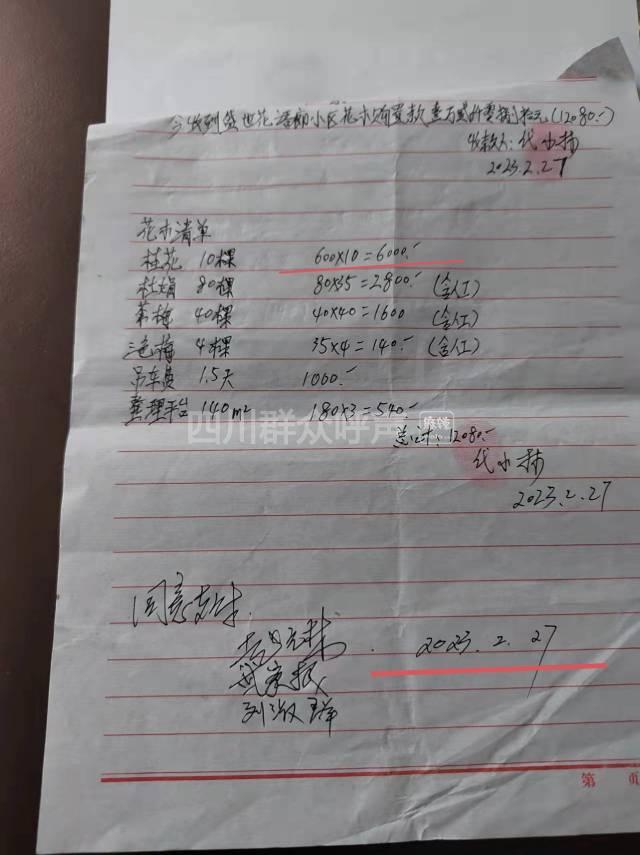 今收到盛世花语郡小区花木购买款壹万贰仟零捌拾元(12080.-)
收款人: 代小扬
2023.2.27
花木清单
桂花 10棵 600×10=6000.-
杜娟 80棵 80×35=2800.- (含人工)
茶梅 40棵 40×40=1600 (含人工)
三色梅 4棵 35×4=140.- (含人工)
吊车费 1.5天 1000.-
整理平台 140m² 180×3=540.-
四川群众呼声
麻辣
总计: 12080.-
代小扬
2023.2.27
同意支付.
2023.2.27
刘淑
第 页